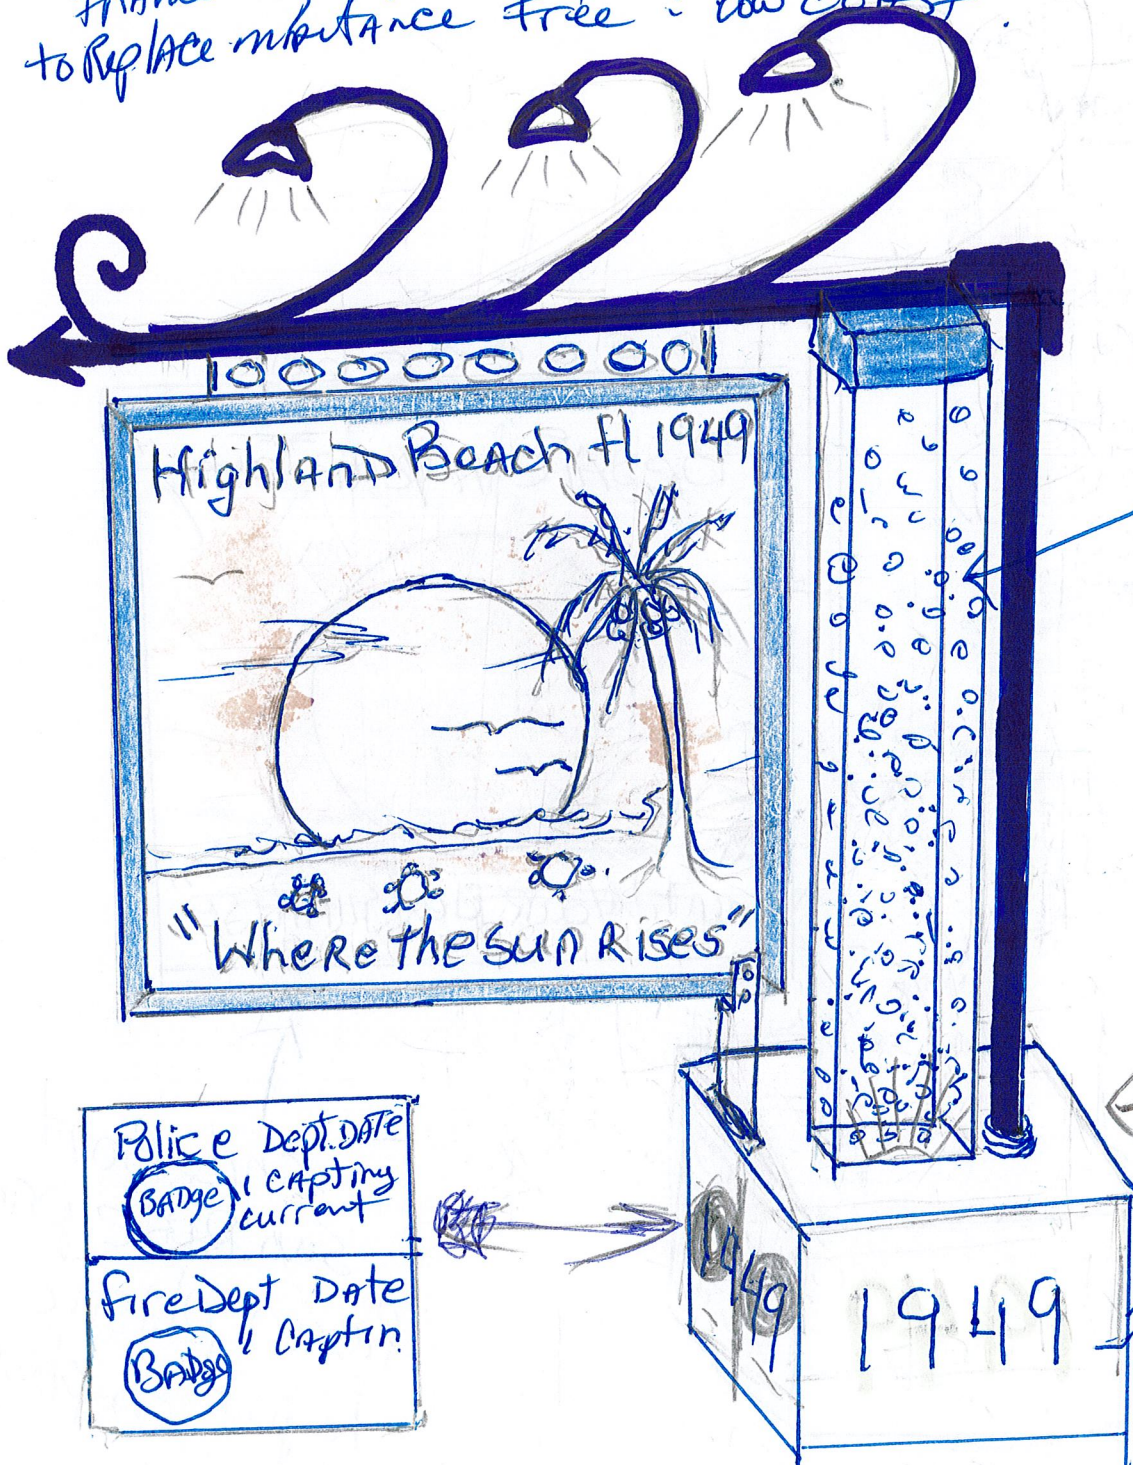 to Replace maintance Free - Low COST
Highland Beach fl 1949
"Where the sun Rises"
Police Dept. DATE
BADge , CAPtiny
current
fire Dept Date
Badge " CAptin
1949
1949